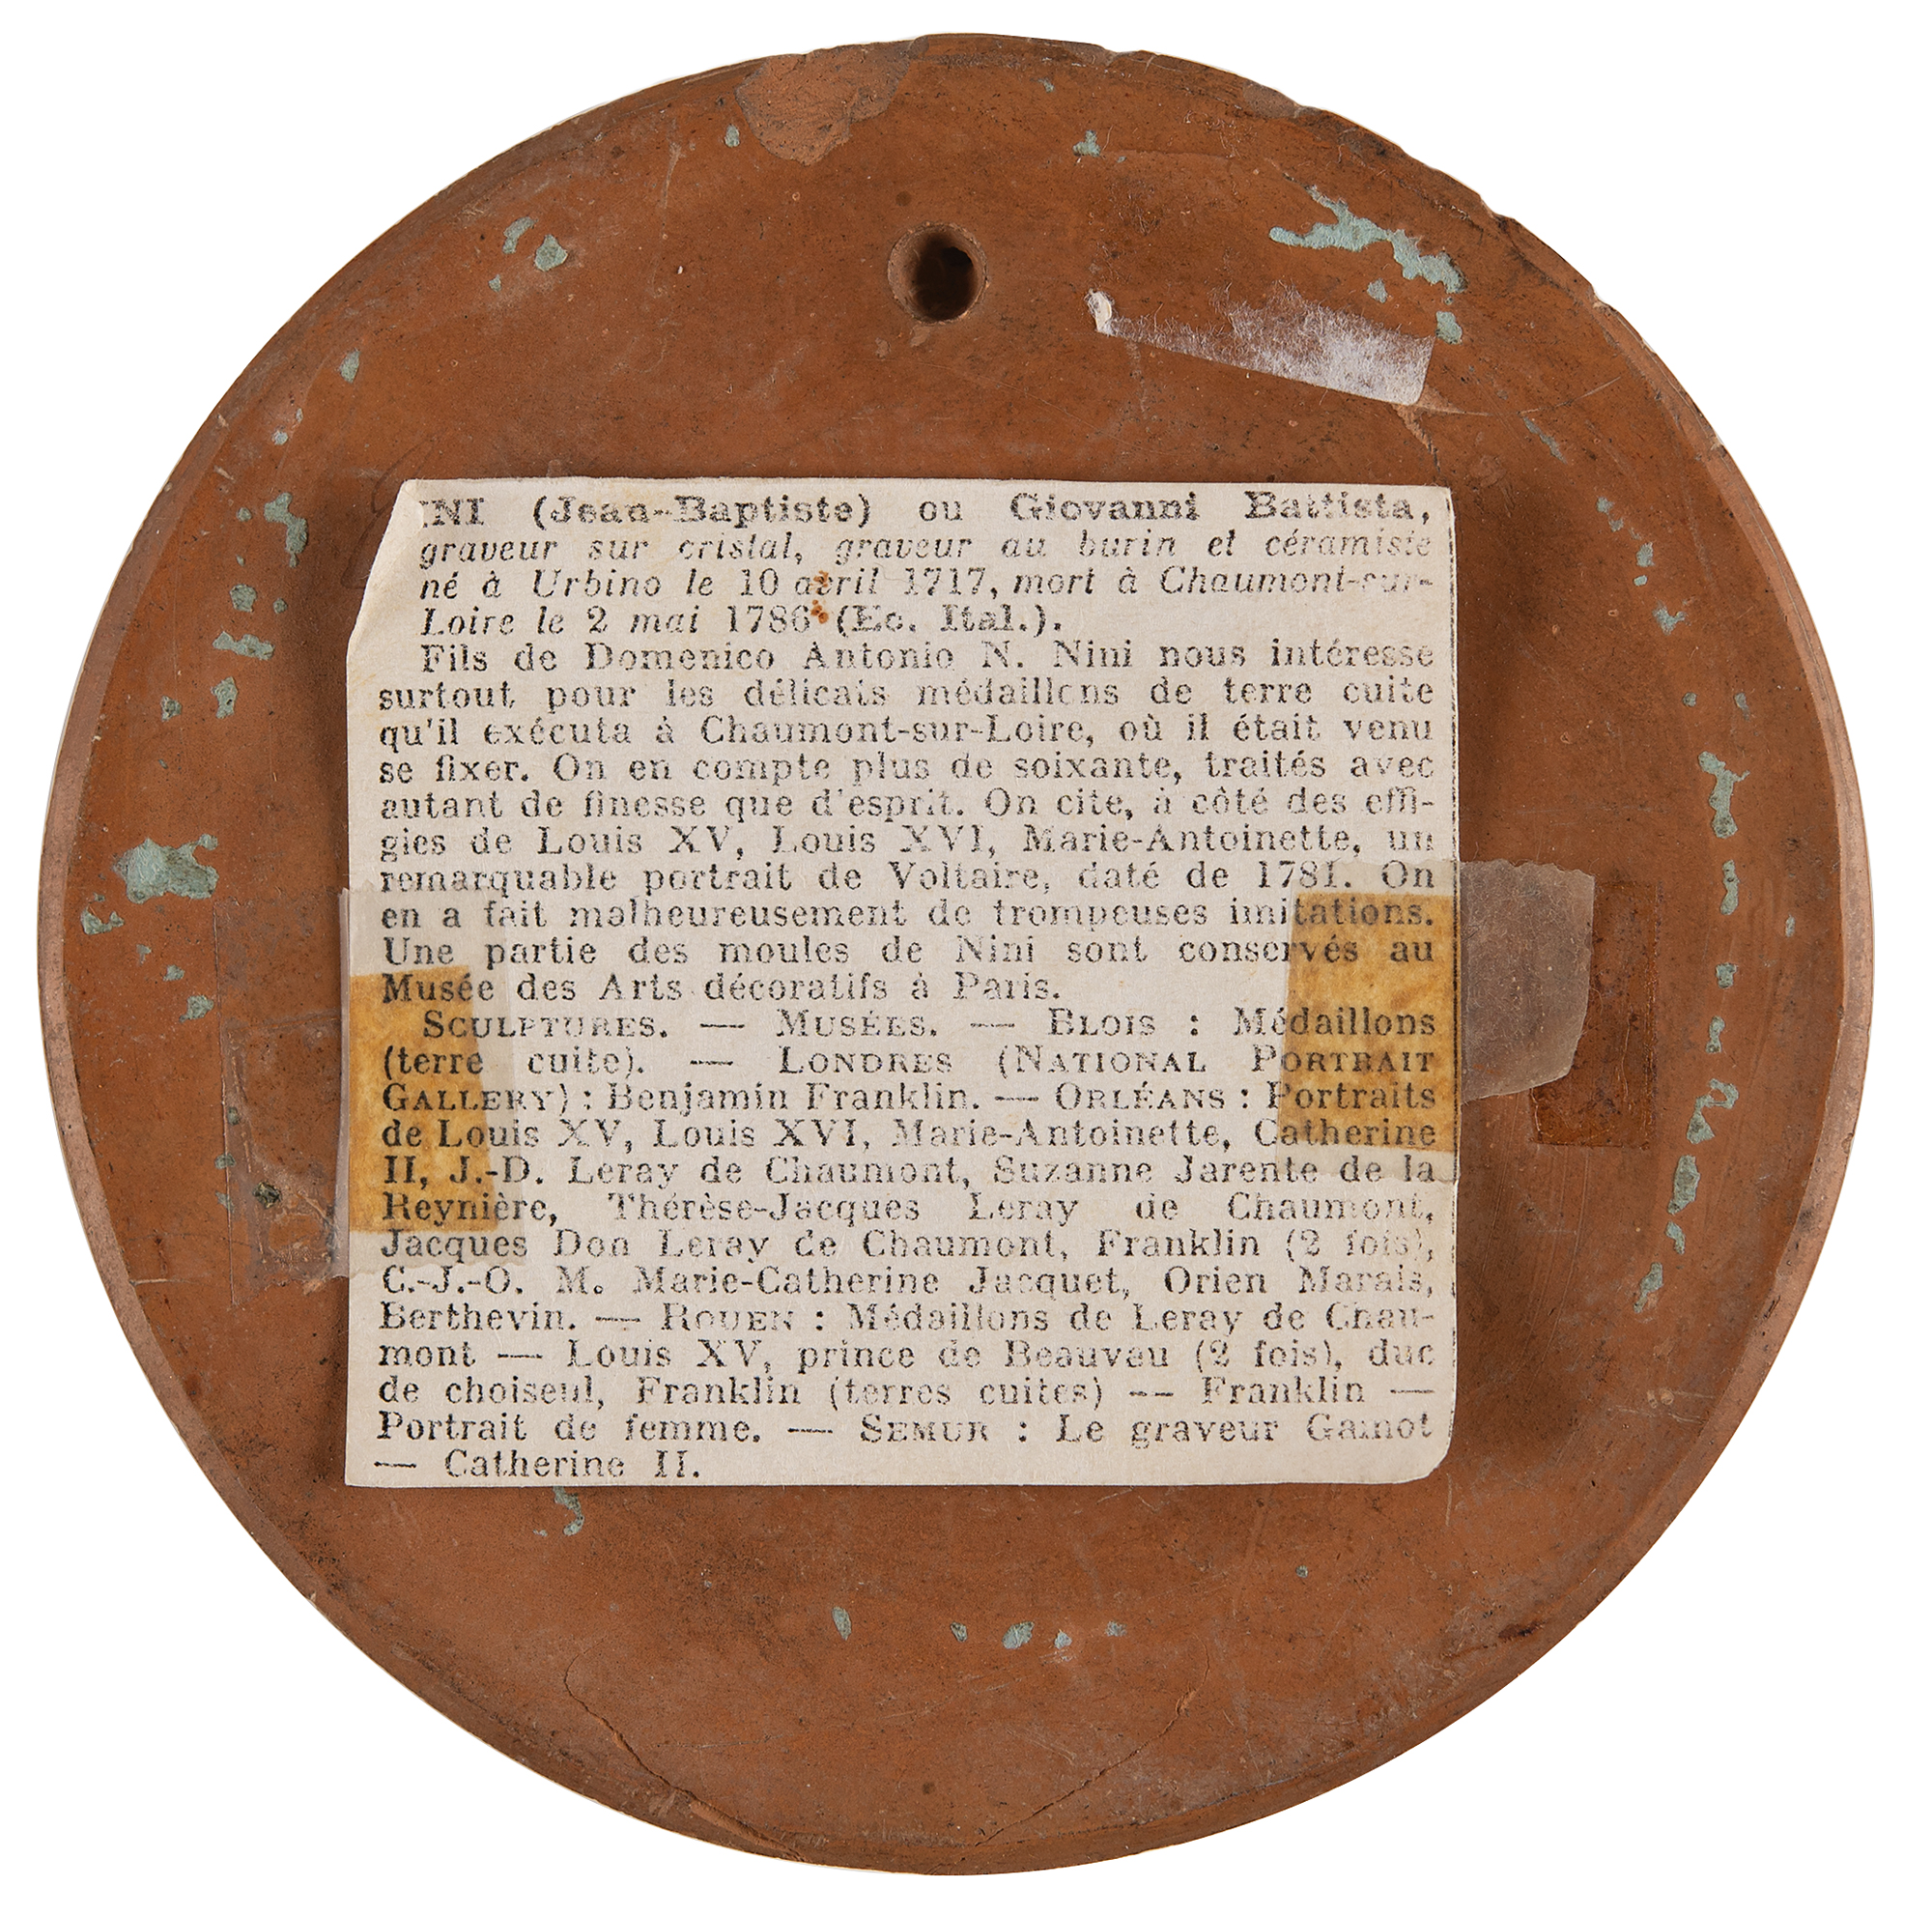 INI (Jean-Baptiste) ou Giovanni Battista,
graveur sur cristal, graveur au burin et céramiste
né à Urbino le 10 avril 1717, mort à Chaumont-sur-
Loire le 2 mai 1786 (Ec. Ital.).
Fils de Domenico Antonio N. Nini nous intéresse
surtout pour les délicats médaillons de terre cuite
qu'il exécuta à Chaumont-sur-Loire, où il était venu
se fixer. On en compte plus de soixante, traités avec
autant de finesse que d'esprit. On cite, à côté des effi-
gies de Louis XV, Louis XVI, Marie-Antoinette, un
remarquable portrait de Voltaire, daté de 1781. On
en a fait malheureusement de trompeuses imitations.
Une partie des moules de Nini sont conservés au
Musée des Arts décoratifs à Paris.
SCULPTURES. — MUSÉES. — BLOIS : Médaillons
(terre cuite). — LONDRES (NATIONAL PORTRAIT
GALLERY) : Benjamin Franklin. — ORLÉANS : Portraits
de Louis XV, Louis XVI, Marie-Antoinette, Catherine
II, J.-D. Leray de Chaumont, Suzanne Jarente de la
Reynière, Thérèse-Jacques Leray de Chaumont,
Jacques Don Leray de Chaumont, Franklin (2 fois),
C.-J.-O. M. Marie-Catherine Jacquet, Orien Marais,
Berthevin. — ROUEN : Médaillons de Leray de Chau-
mont — Louis XV, prince de Beauvau (2 fois), duc
de choiseul, Franklin (terres cuites) -- Franklin —
Portrait de femme. — SEMUR : Le graveur Gamot
— Catherine II.